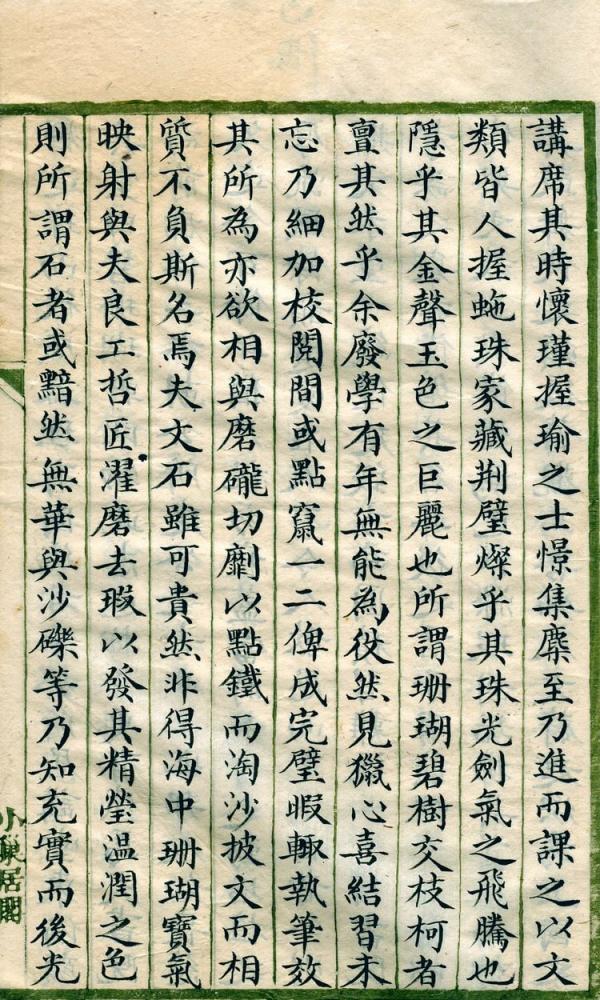 講席其時懷瑾握瑜之士憬集麇至乃進而課之以文
類皆人握虵珠家藏荆璧燦乎其珠光劍氣之飛騰也
隱乎其金聲玉色之巨麗也所謂珊瑚碧樹交枝柯者
亶其然乎余廢學有年無能為役然見獵心喜結習未
忘乃細加校閱間或點竄一二俾成完璧暇輙執筆效
其所為亦欲相與磨礲切劘以點鐵而淘沙披文而相
質不負斯名焉夫文石雖可貴然非得海中珊瑚寶氣
映射與夫良工哲匠濯磨去瑕以發其精瑩溫潤之色
則所謂石者或黯然無華與沙礫等乃知充實而後光
小巢居閣